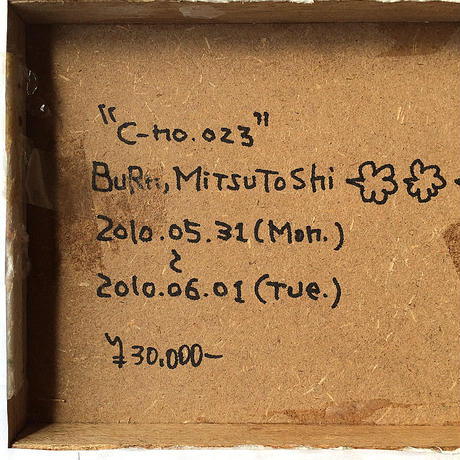 "C-no.023"
BuRn, MiTSuToShi
2010.05.31 (Mon.)
~
2010.06.01 (Tue.)
¥30,000-